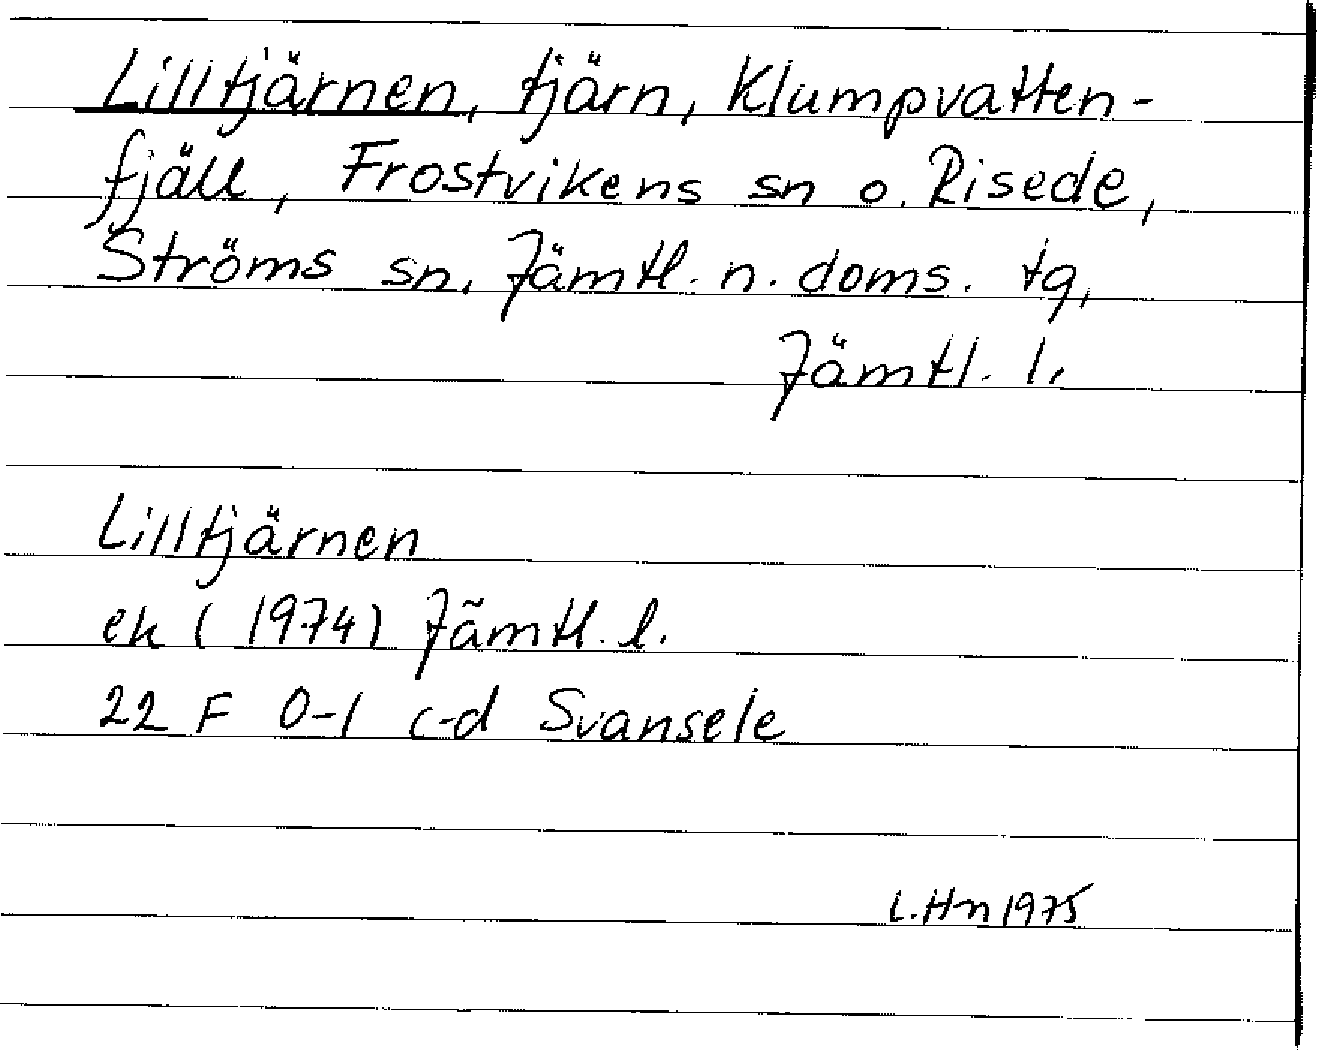 Lilltjärnen, tjärn, Klumpvatten-
fjäll, Frostvikens sn o. Risede,
Ströms sn, Jämtl. n. doms. tg,
Jämtl. l.
Lilltjärnen
ek (1974) Jämtl. l.
22 F 0-1 c-d Svansele
L.Hn 1975